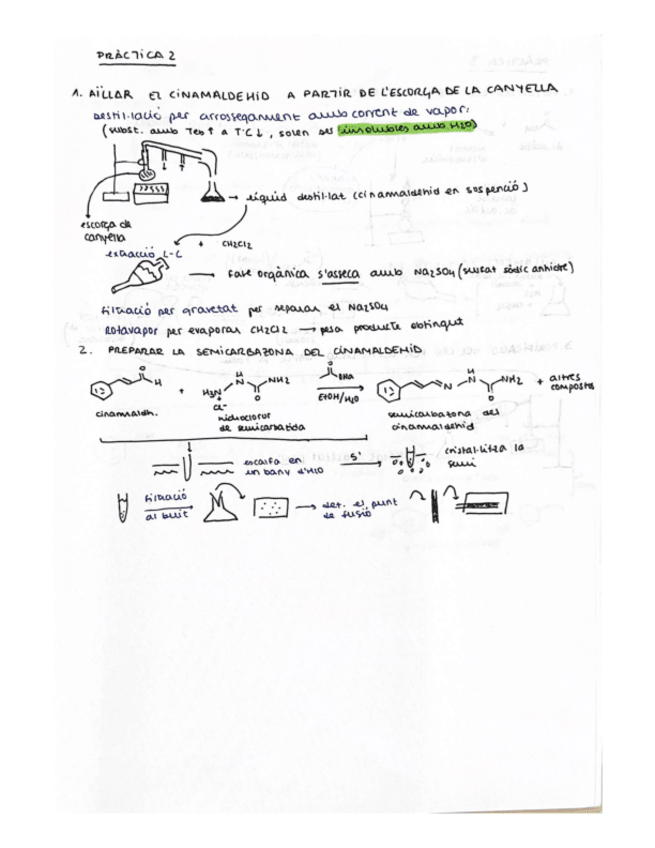 PRÀCTICA 2
1. AÏLLAR EL CINAMALDEHID A PARTIR DE L'ESCORÇA DE LA CANYELLA
Destil·lació per arrossegament amb corrent de vapor:
(subst. amb Teb↑ a TºC↓, solen ser insolubles amb H2O)
→ líquid destil·lat (cinamaldehid en suspenció)
escorça de
canyella
+ CH2Cl2
extracció L-L
→ fase orgànica s'asseca amb Na2SO4 (sulfat sòdic anhidre)
Filtració per gravetat per separar el Na2SO4
Rotavapor per evaporar CH2Cl2 → pesa producte obtingut
2. PREPARAR LA SEMICARBAZONA DEL CINAMALDEHID
O H + H3N+ Cl- H N O NH2 O ONa EtOH/H2O N H N O NH2 + altres
compostos
cinamaldh.
hidroclorur
de semicarbatida
semicarbatona del
cinamaldehid
escalfa en
un bany d'H2O
5'
cristal·litza la
semi
Filtració
al buit
→ det. el punt
de fusió